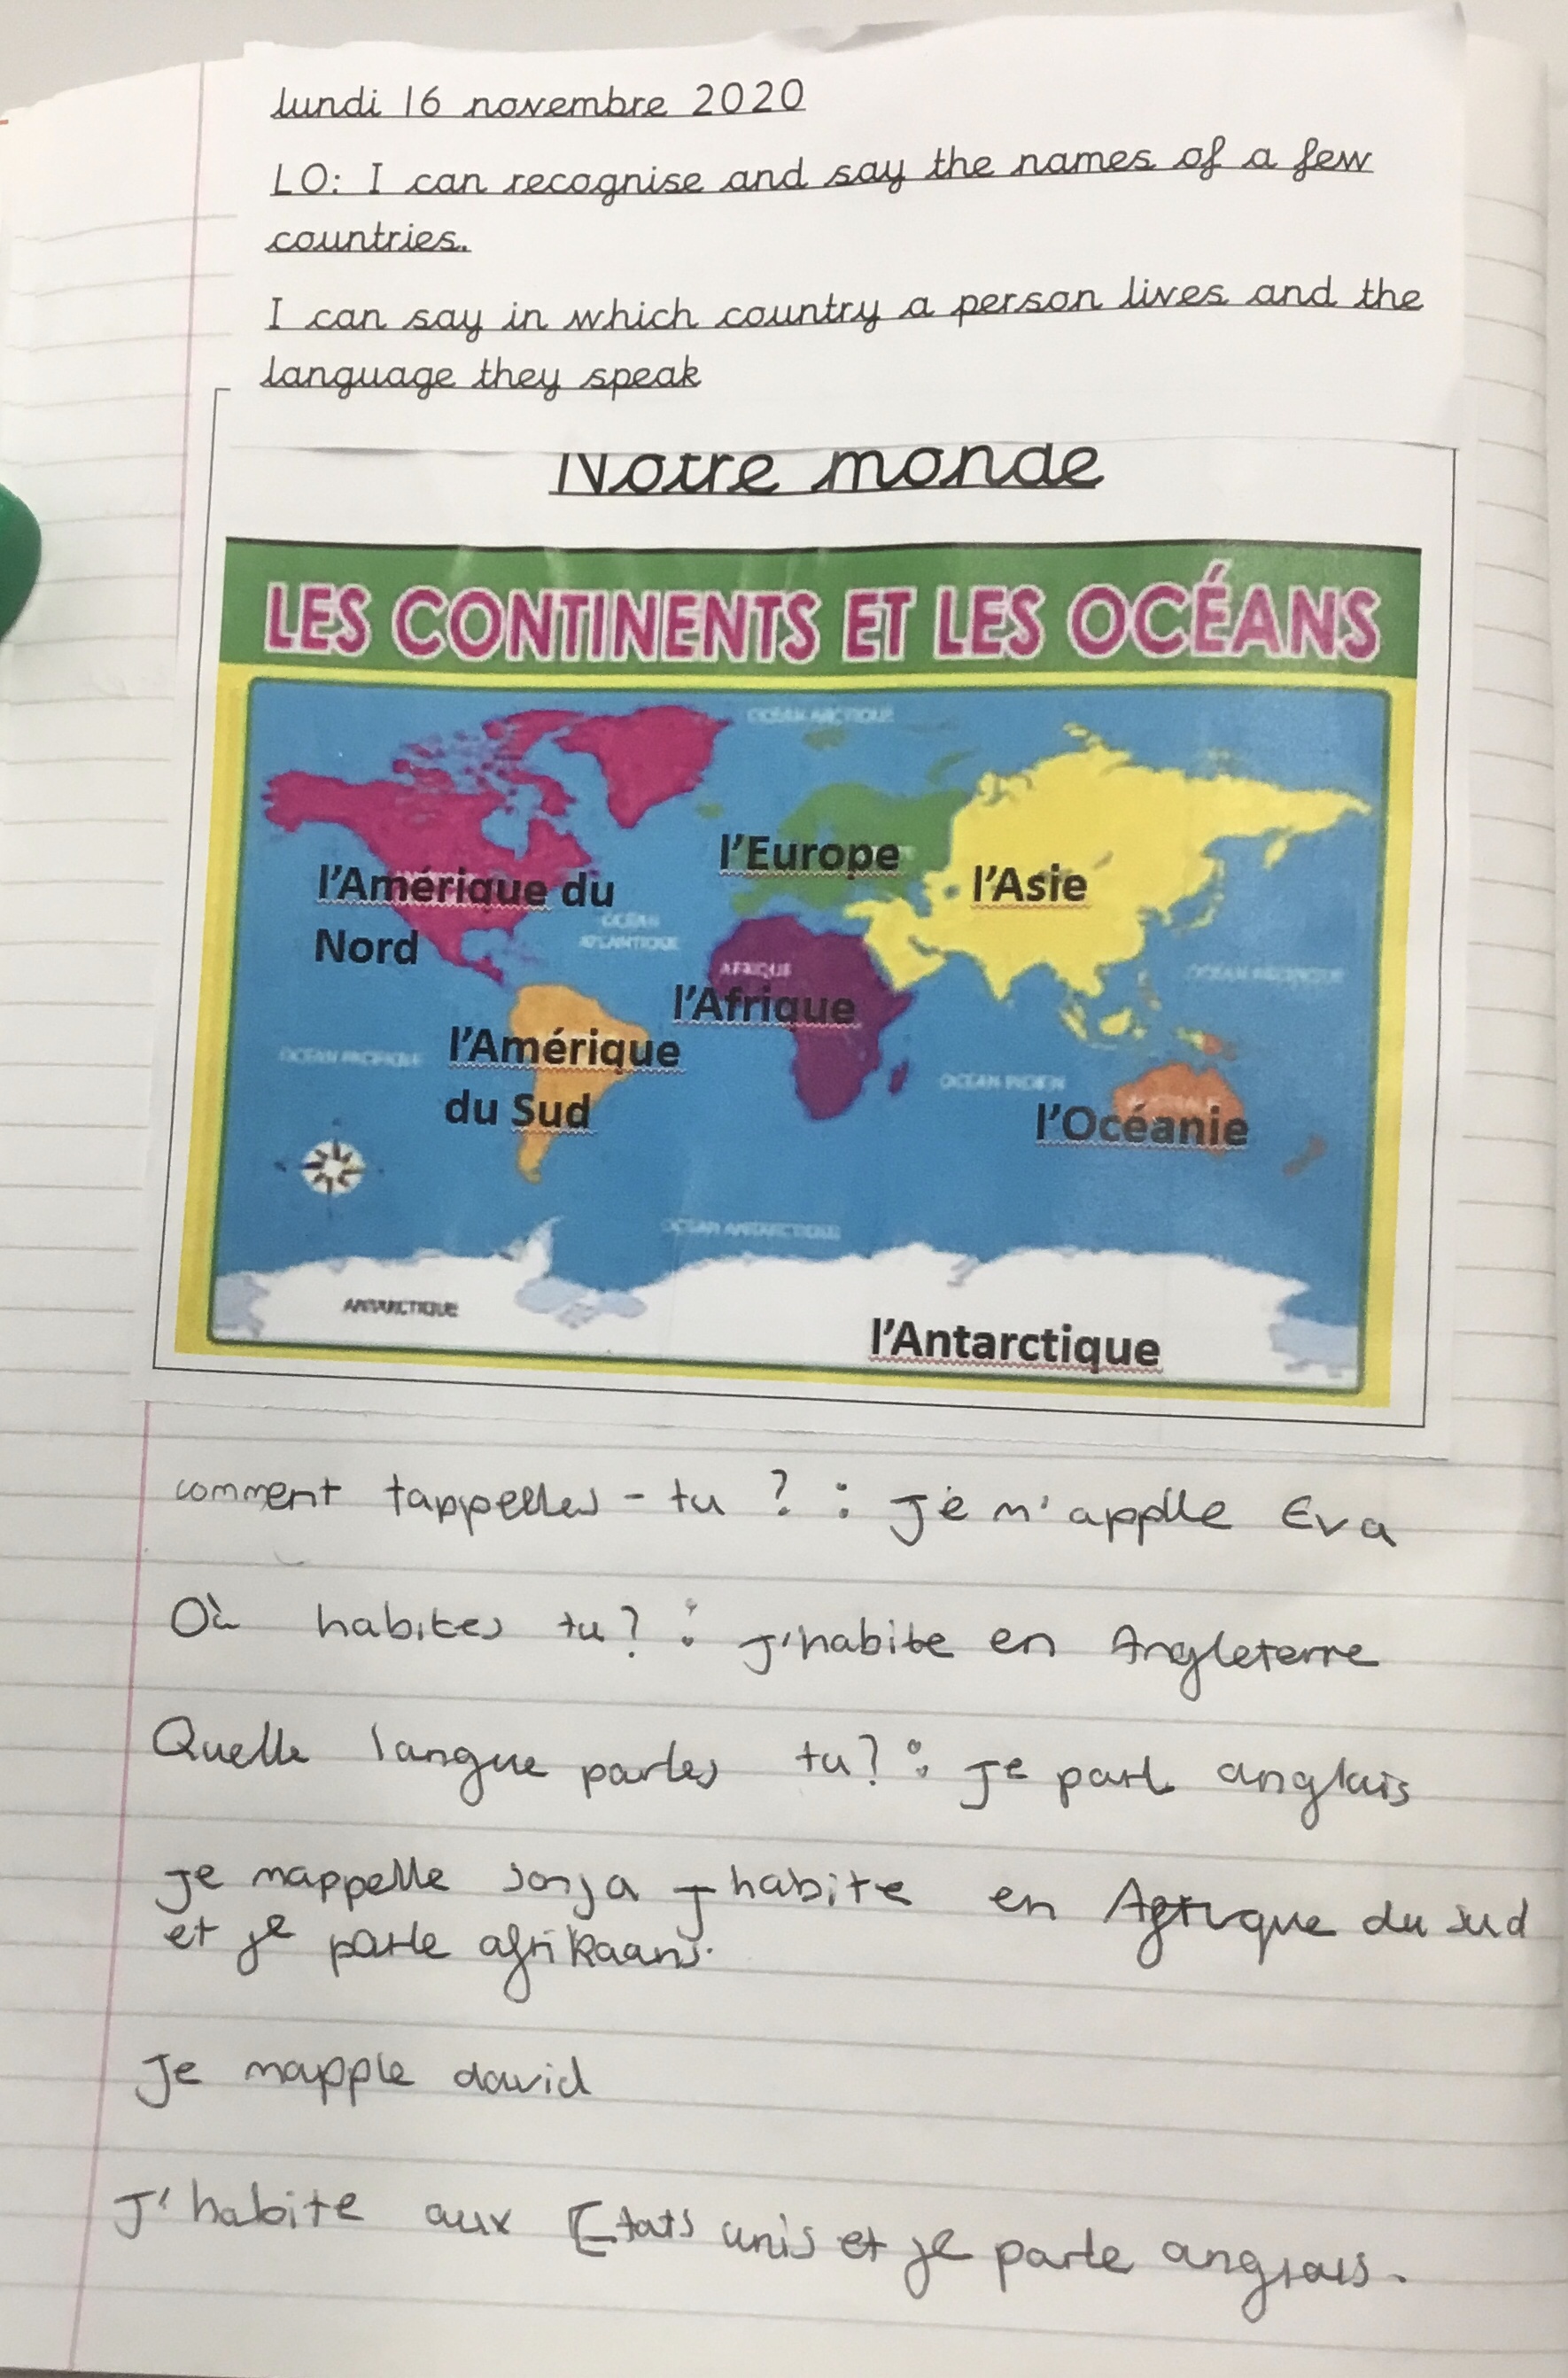 lundi 16 novembre 2020
LO: I can recognise and say the names of a few
countries.
I can say in which country a person lives and the
language they speak
Notre monde
LES CONTINENTS ET LES OCÉANS
OCÉAN ARCTIQUE
l'Europe
l'Asie
l'Amérique du
Nord
OCÉAN
ATLANTIQUE
AFRIQUE
OCÉAN PACIFIQUE
l'Afrique
l'Amérique
du Sud
OCÉAN PACIFIQUE
OCÉAN INDIEN
l'Océanie
OCÉAN ANTARCTIQUE
ANTARCTIQUE
l'Antarctique
comment tappelles-tu ? : Je m'applle Eva
Où habites tu? : J'habite en Angleterre
Quelle langue parles tu? : Je parle anglais
Je mappelle sonja J habite en Afrique du sud
et je parle afrikaans.
Je mapple david
J'habite aux Etats unis et je parle anglais.